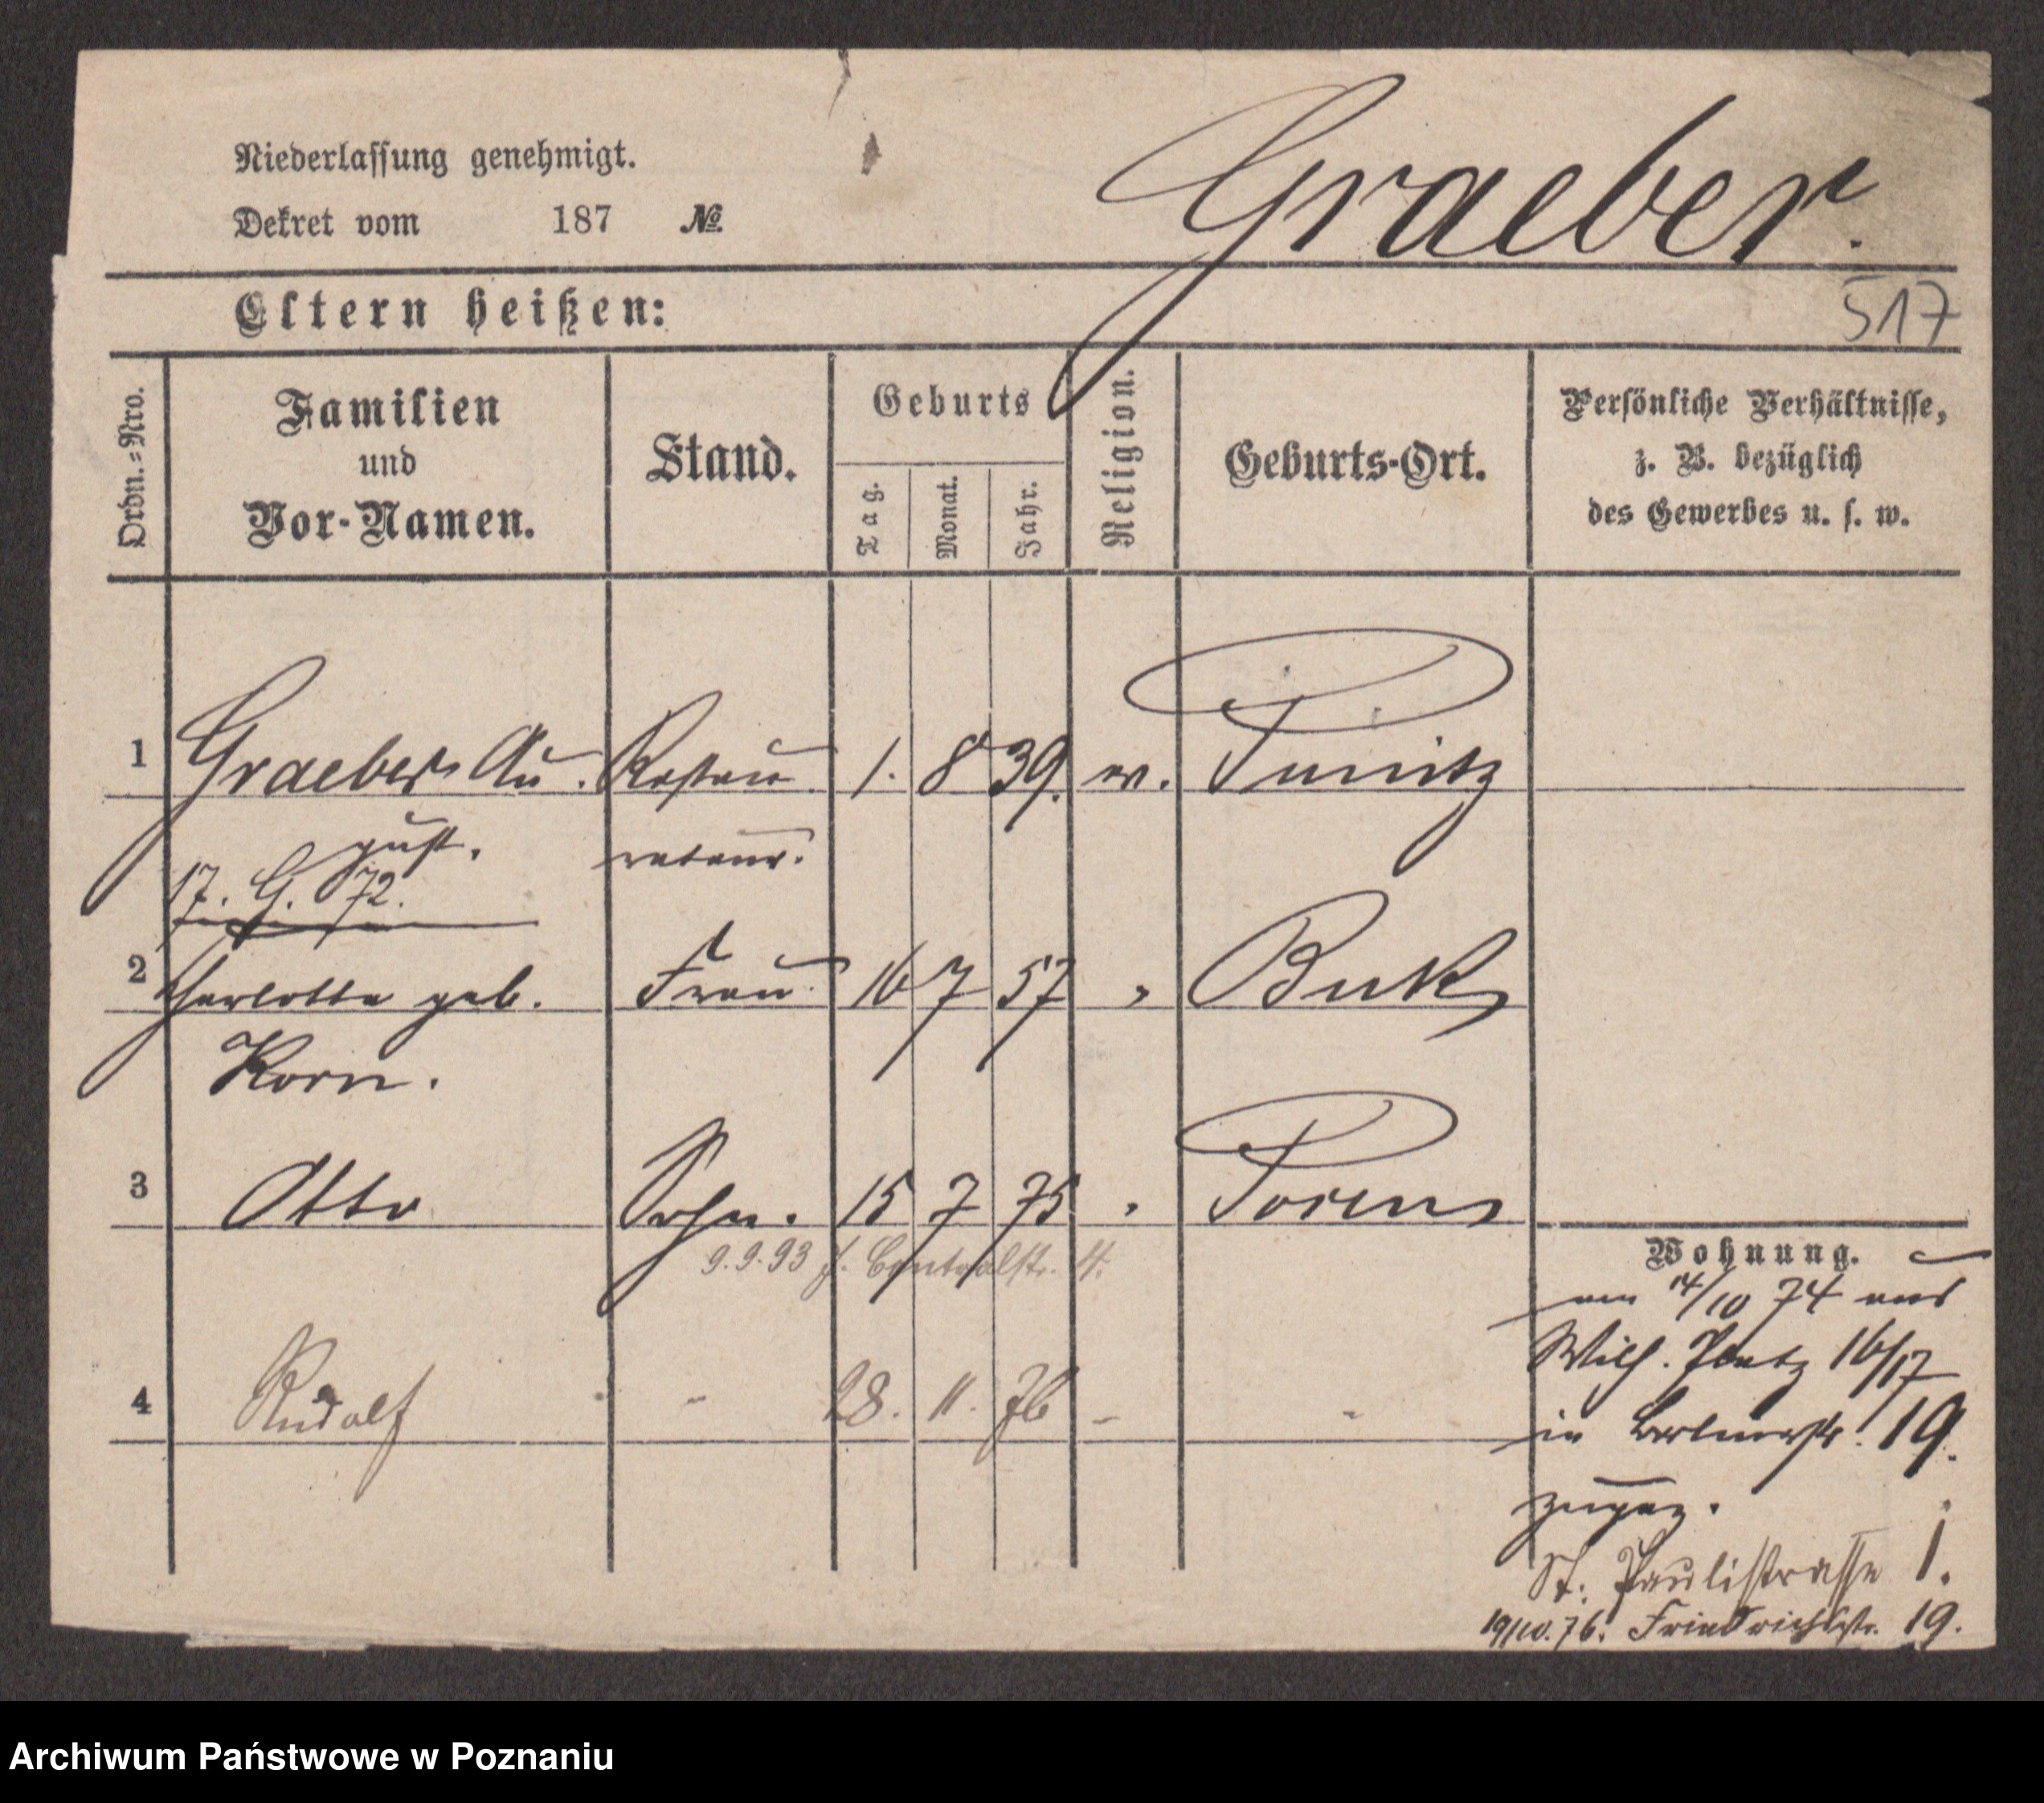 Niederlassung genehmigt.
Dekret vom 187 №
Graeber.
Eltern heißen:
517
Ordn.-Nro.
Familien
und
Vor-Namen.
Stand.
Geburts
Tag.
Monat.
Jahr.
Religion.
Geburts-Ort.
Persönliche Verhältnisse,
z. B. bezüglich
des Gewerbes u. s. w.
1 Graeber Au- Restau- 1. 8 39. ev. Punitz
gust. rateur.
17. G. 72.
2 Charlotte geb. Frau 16 7 57 " Buk
Korn.
3 Otto Sohn. 15 7 75 " Posen
9.9.93 f. Centralstr. 4.
4 Rudolf " 28. 11. 76 " "
Wohnung.
am 14/10 74 aus
Wilh. Platz 16/17
in Berlinerstr. 19.
zugez.
St. Paulistrasse 1.
19/10.76. Friedrichstr. 19.
Archiwum Państwowe w Poznaniu